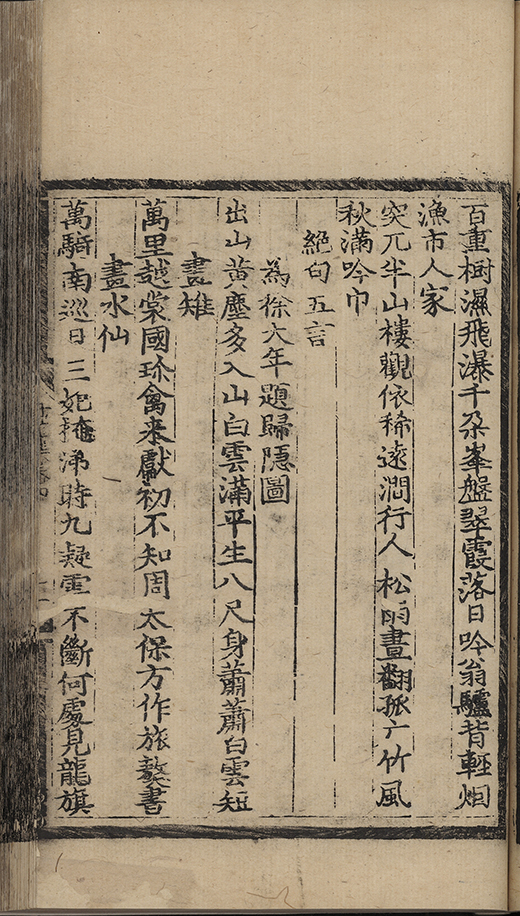 百重樹濕飛瀑千朶峯盤翠霞落日吟翁驢背輕烟
漁市人家
突兀半山樓觀依稀遠澗行人松雨晝翻孤亠竹風
秋滿吟巾
絶句五言
為徐大年題歸隱圖
出山黃塵多入山白雲滿平生八尺身蕭蕭白雲短
畫雉
萬里越裳國珎禽来獻初不知周太保方作旅獒書
畫水仙
萬騎南巡日三妃掩涕時九疑雲不斷何處見龍旗